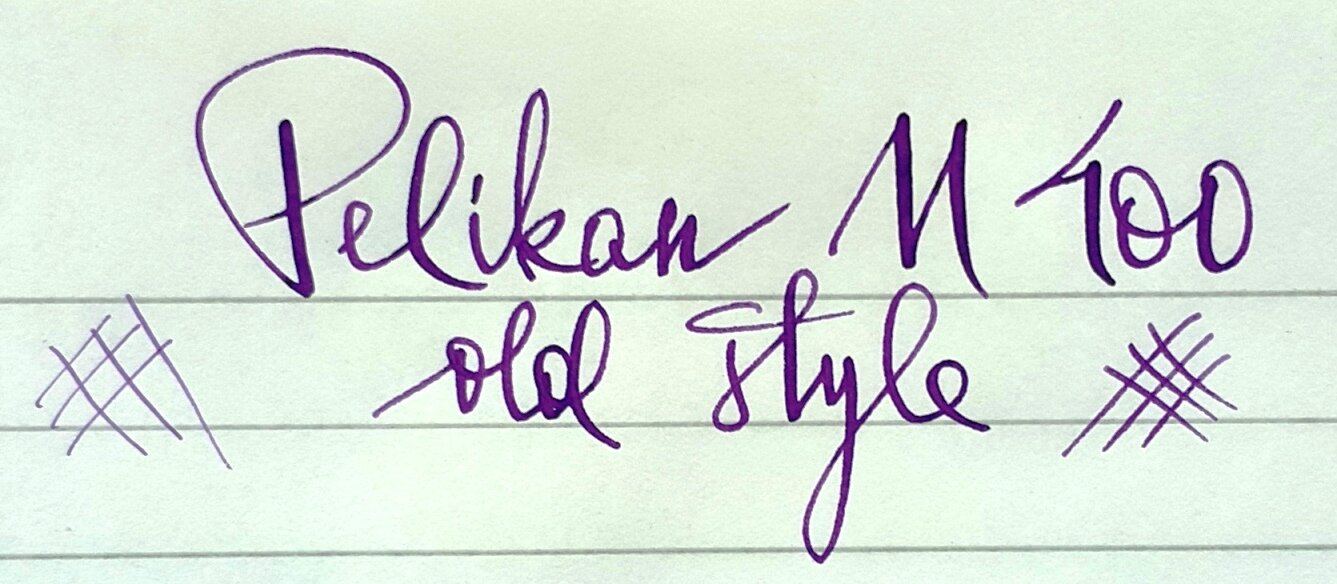 Pelikan M 400
old style